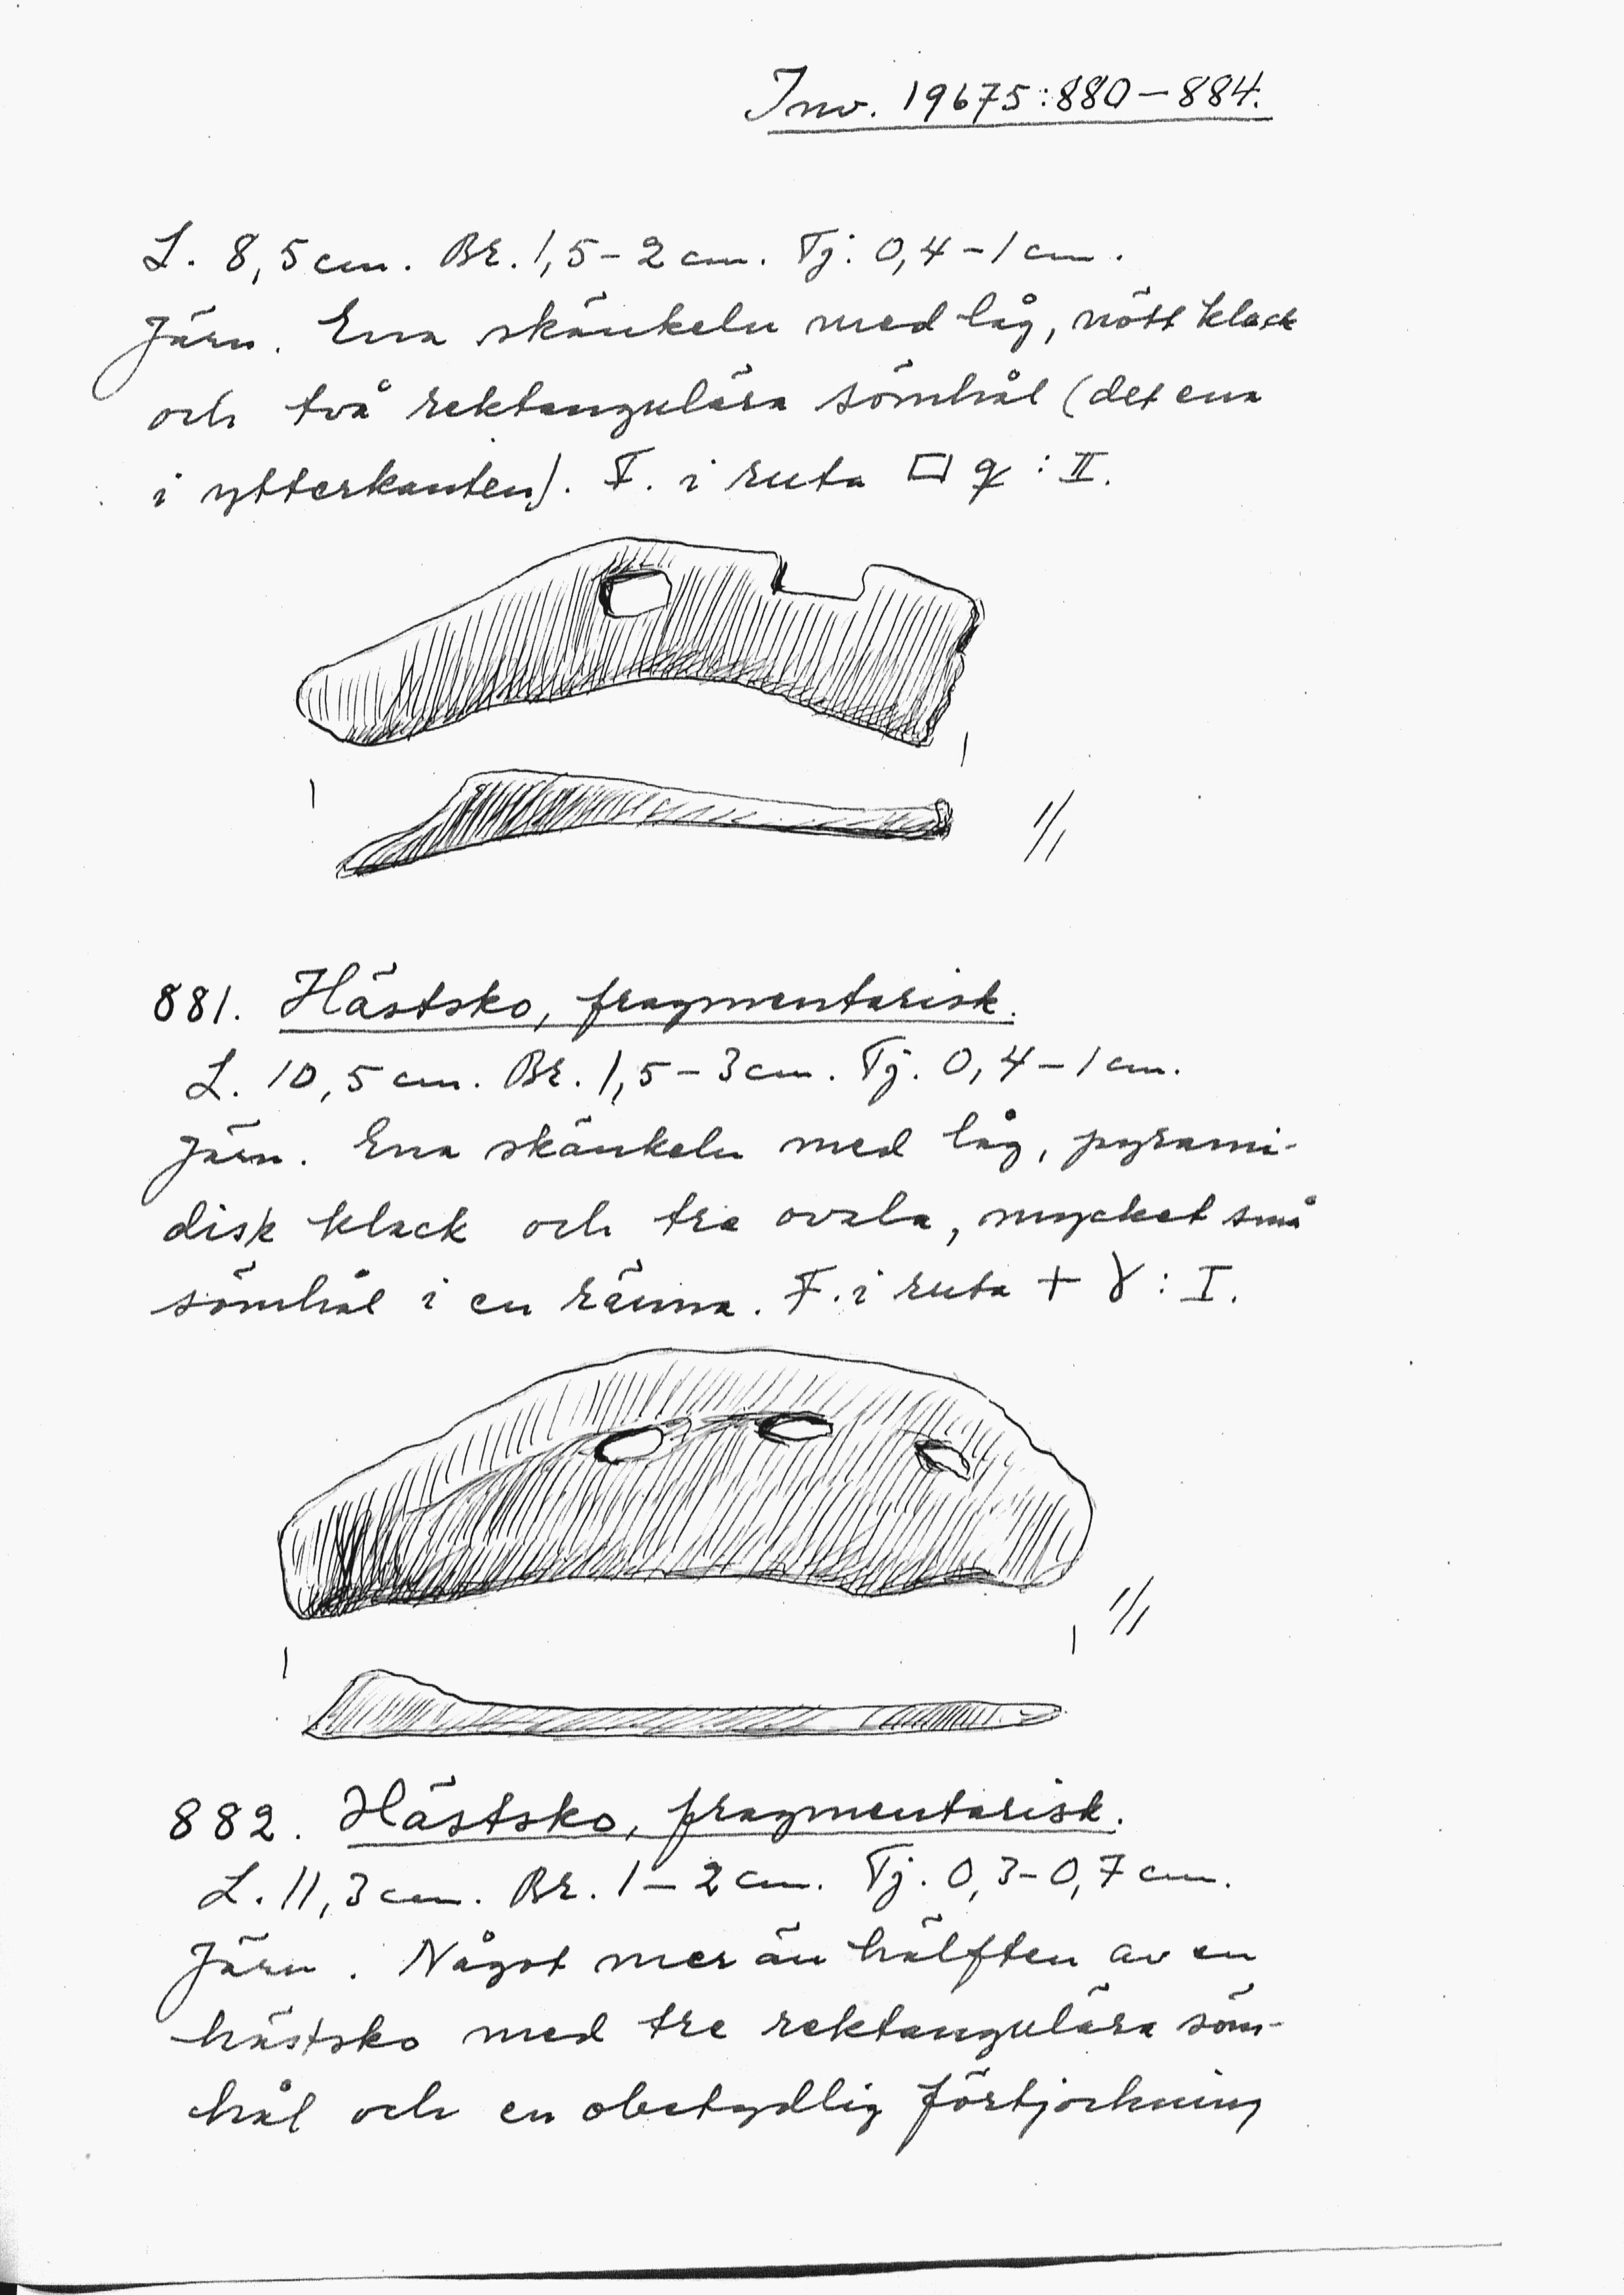 Inv. 19675:880–884.
L. 8,5 cm. Br. 1,5–2 cm. Tj. 0,4–1 cm.
Järn. Ena skänkeln med låg, nött klack
och två rektangulära sömhål (det ena
i ytterkanten). F. i ruta □ : II.
1/1
881. Hästsko, fragmentarisk.
L. 10,5 cm. Br. 1,5–3 cm. Tj. 0,4–1 cm.
Järn. Ena skänkeln med låg, pyrami-
disk klack och tre ovala, mycket små
sömhål i en ränna. F. i ruta + γ : I.
1/1
882. Hästsko, fragmentarisk.
L. 11,3 cm. Br. 1–2 cm. Tj. 0,3–0,7 cm.
Järn. Något mer än hälften av en
hästsko med tre rektangulära söm-
hål och en obetydlig förtjockning